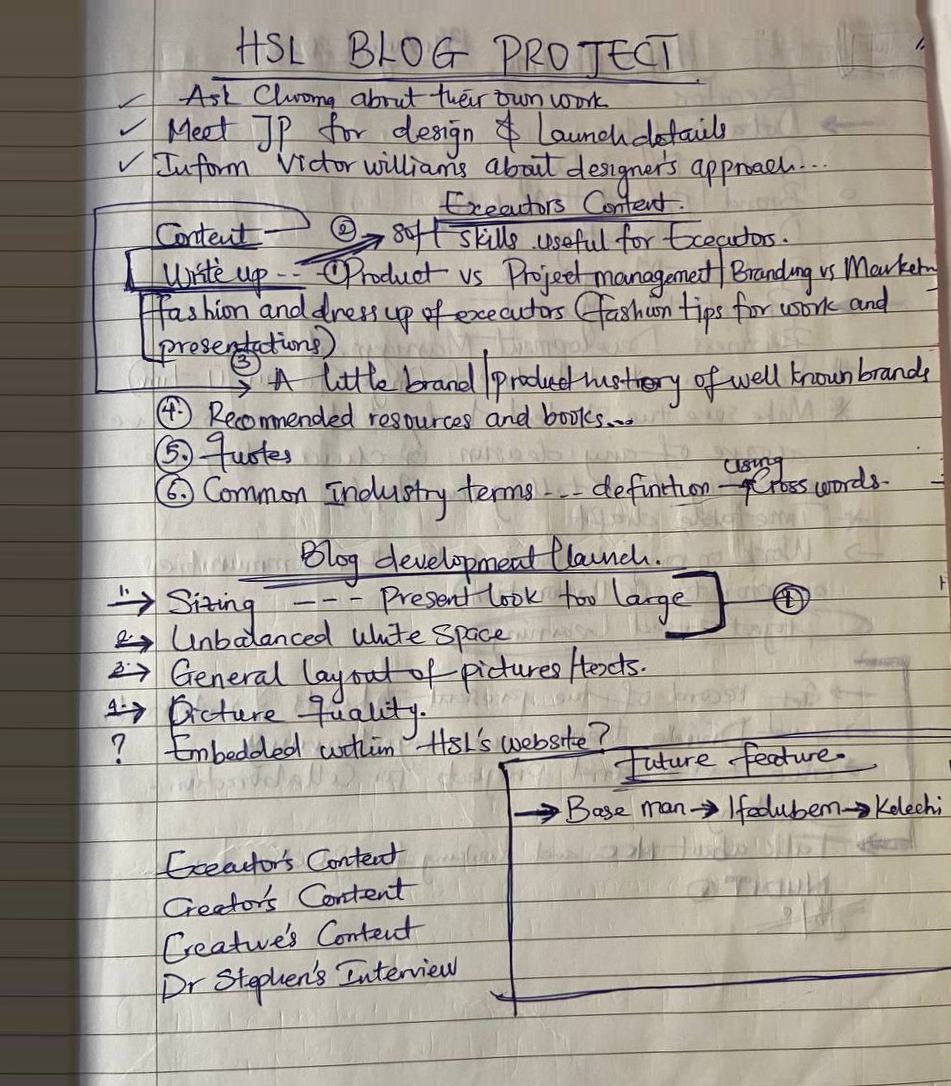 HSL BLOG PROJECT
✓ Ask Chioma about their own work
✓ Meet JP for design & Launch details
✓ Inform Victor williams about designer's approach...
Executors Content.
Content ② → Soft skills useful for Executors.
Write up -- ① Product vs Project management | Branding vs Market
fashion and dress up of executors (fashion tips for work and
presentations)
③ → A little brand/product history of well known brands
④. Recommended resources and books...
⑤. Quotes
⑥. Common Industry terms --- definition → using Cross words.
Blog development/launch.
1. → Sizing --- Present look too large
2. → Unbalanced White Space
3. → General layout of pictures/texts.
4. → Picture Quality.
? Embedded within HSL's website?
Future feature.
→ Base man → Ifedubem → Kelechi
Executor's Content
Creator's Content
Creative's Content
Dr Stephen's Interview